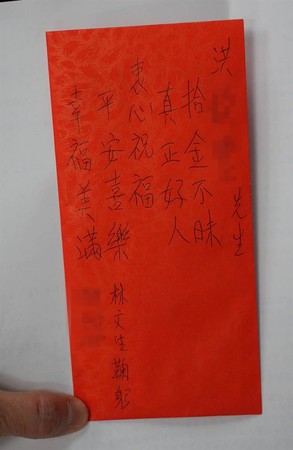 洪 先生
拾金不昧
真正好人
衷心祝福
平安喜樂
幸福美滿
林文生鞠躬